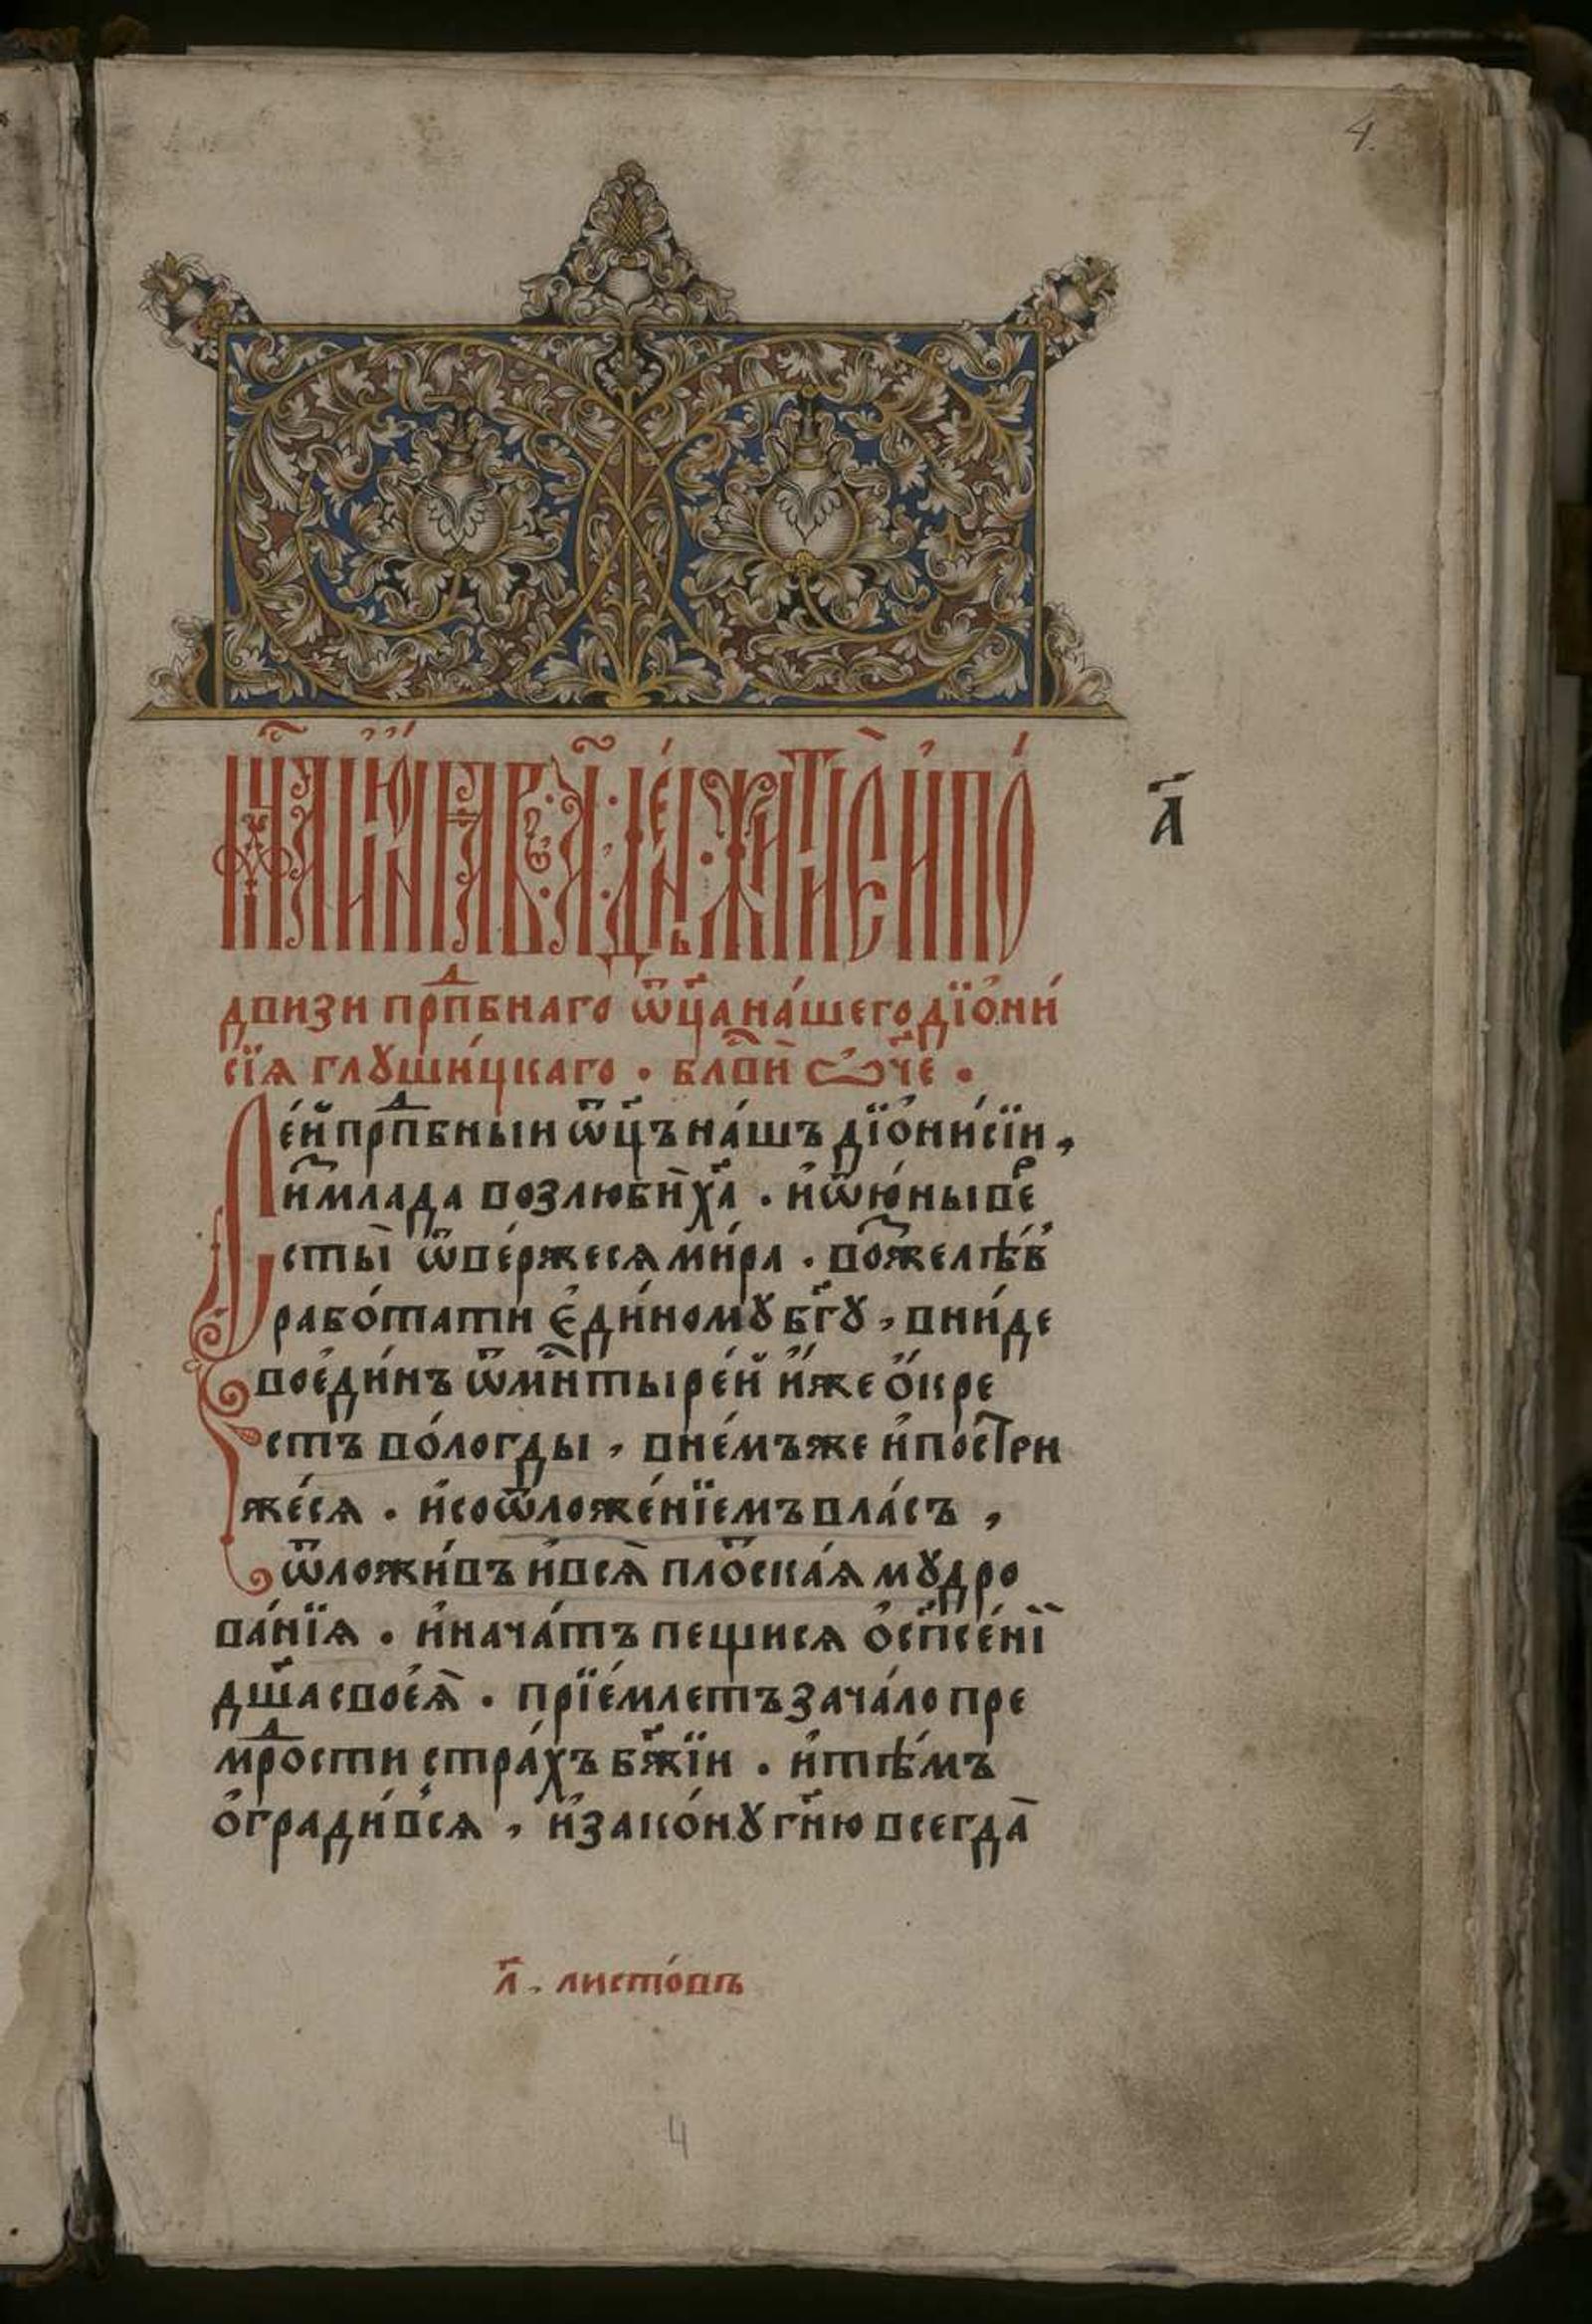 4.
мⷭ҇ца їю́нїа въ а҃ де́нь. житїѐ и҆ по́
двизи прпⷣбнаго ѿц҃а на́шего дїо҆ни́
сїѧ глꙋши́цкаго • блⷭ҇ви ѻ҆́ч҃е •
а҃
Се́й прпⷣбныи ѿц҃ъ на́шъ дїо҆ни́сїи,
и҆змлада возлюбѝ хⷭ҇а̀ . и҆ ѿ ю҆́ны вер
сты̀ ѿве́ржесѧ ми́ра . вожделѣ́въ
рабо́тати є҆ди́номꙋ бг҃ꙋ , вни́де
вое҆ди́нъ ѿ мнⷭ҇тыре́й и҆́же о҆́кре
стъ во́логды , вне́мъже и҆ постри
же́сѧ . и҆ со ѿложе́нїемъ вла́съ ,
ѿложи́въ и҆ всѧ̀ пло́скаѧ мꙋдро
ва́нїѧ . и҆ нача́тъ пещисѧ о҆ сп҃се́нїи
дш҃а своеѧ̀ . прїе́млетъ зача́ло пре
мрⷣости стра́хъ бж҃їи . и҆ тѣ́мъ
о҆гради́всѧ , и҆ зако́нꙋ гн҃ю всегда̀
л҃ , листо́въ
4